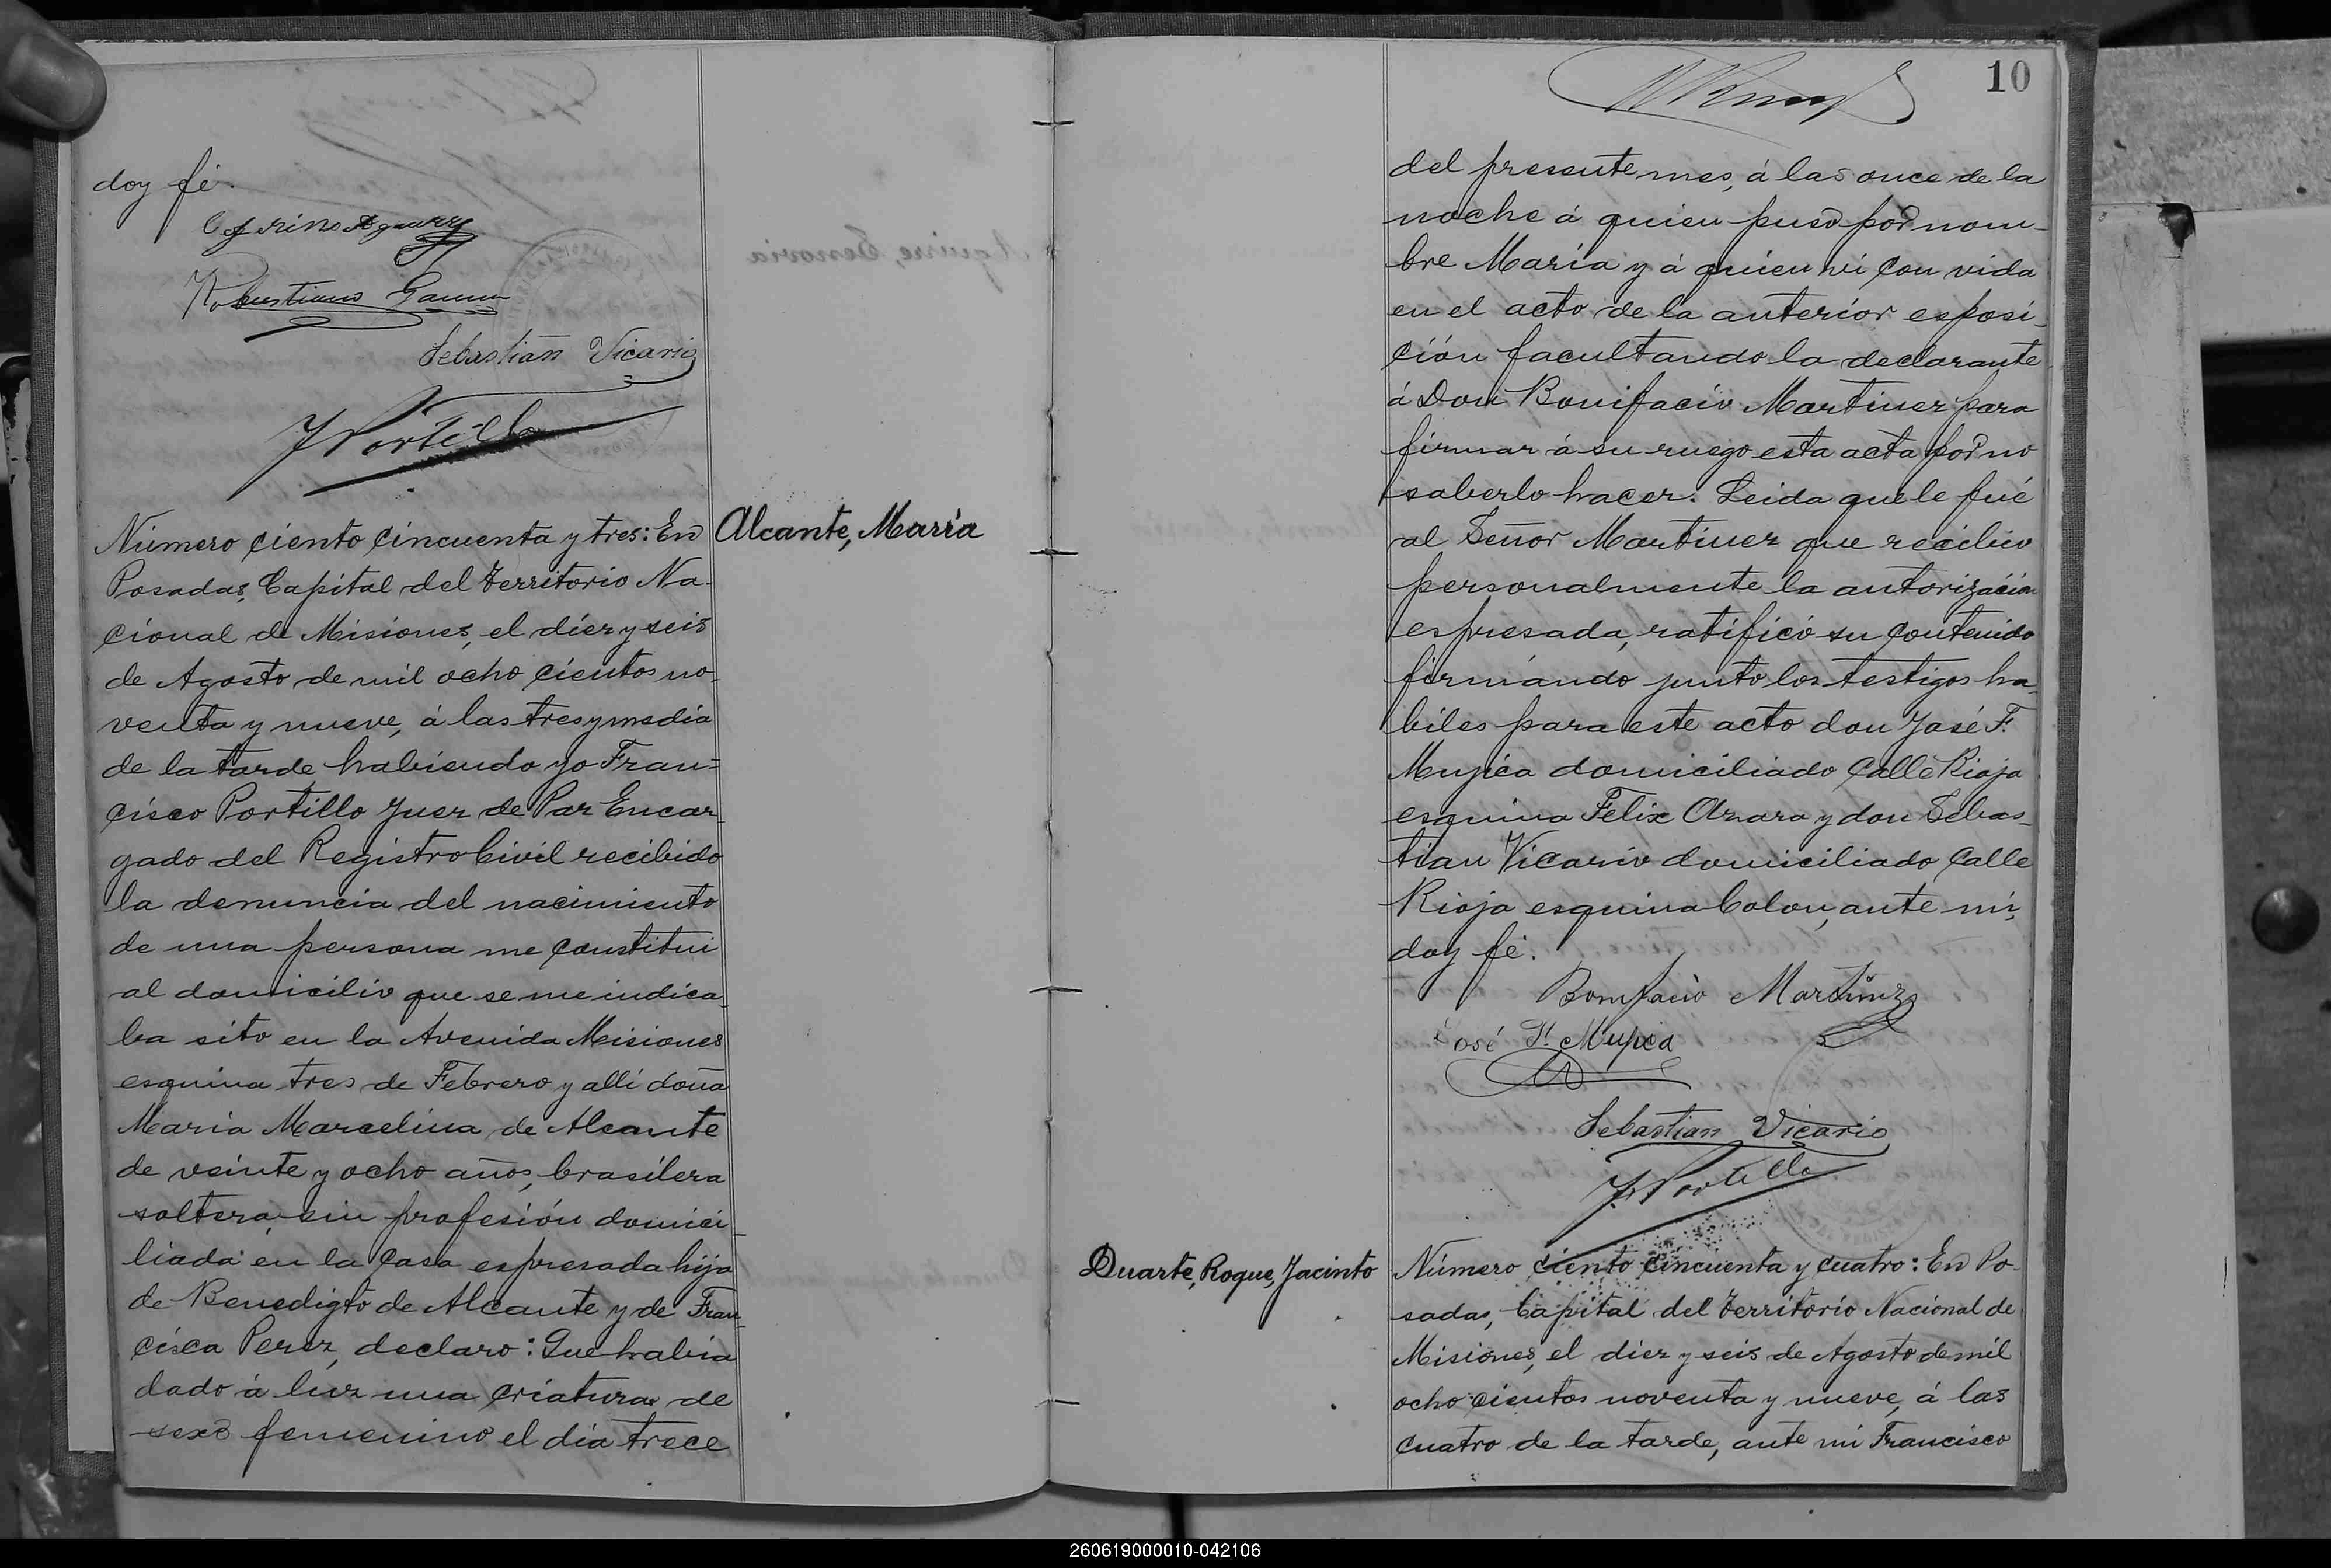 doy fé.
Robustiano Gauna
Sebastián Vicario
F Portillo
Número ciento cincuenta y tres: En
Alcante, María
Posadas, Capital del Territorio Na-
cional de Misiones, el diez y seis
de Agosto de mil ocho cientos no-
venta y nueve, á las tres y media
de la tarde habiendo yo Fran=
cisco Portillo Juez de Paz Encar-
gado del Registro Civil recibido
la denuncia del nacimiento
de una persona me constitui
al domicilio que se me indica-
ba sito en la Avenida Misiones
esquina tres de Febrero y alli doña
Maria Marcelina de Alcante
de veinte y ocho años, brasilera
soltera sin profesión domici-
liada en la casa espresada hija
de Benedigto de Alcante y de Fran-
cisca Perez, declaro: Que habia
dado á luz una criatura de
sexo femenino el dia trece
10
del pressente mes, á las once de la
noche á quien puso por nom-
bre María y á quien vi con vida
en el acto de la anterior esposi-
ción facultando la declarante
á Don Bonifacio Martinez para
firmar á su ruego esta acta por no
saberlo hacer. Leida que le fué
al Señor Martinez que recibio
personalmente la autorización
espresada, ratificó su contenido
firmándo junto los testigos ha-
biles para este acto don José F.
Mujica domiciliado Calle Rioja
esquina Felix Azara y don Sebas-
tian Vicario domiciliado Calle
Rioja esquina Colon, ante mi,
doy fé.
Bonifacio Martinez
José F. Mujica
Sebastian Vicario
F. Portillo
Duarte, Roque, Jacinto
Número ciento cincuenta y cuatro: En Po-
sadas, Capital del Territorio Nacional de
Misiones, el diez y seis de Agosto de mil
ocho cientos noventa y nueve, á las
cuatro de la tarde, ante mi Francisco
260619000010-042106